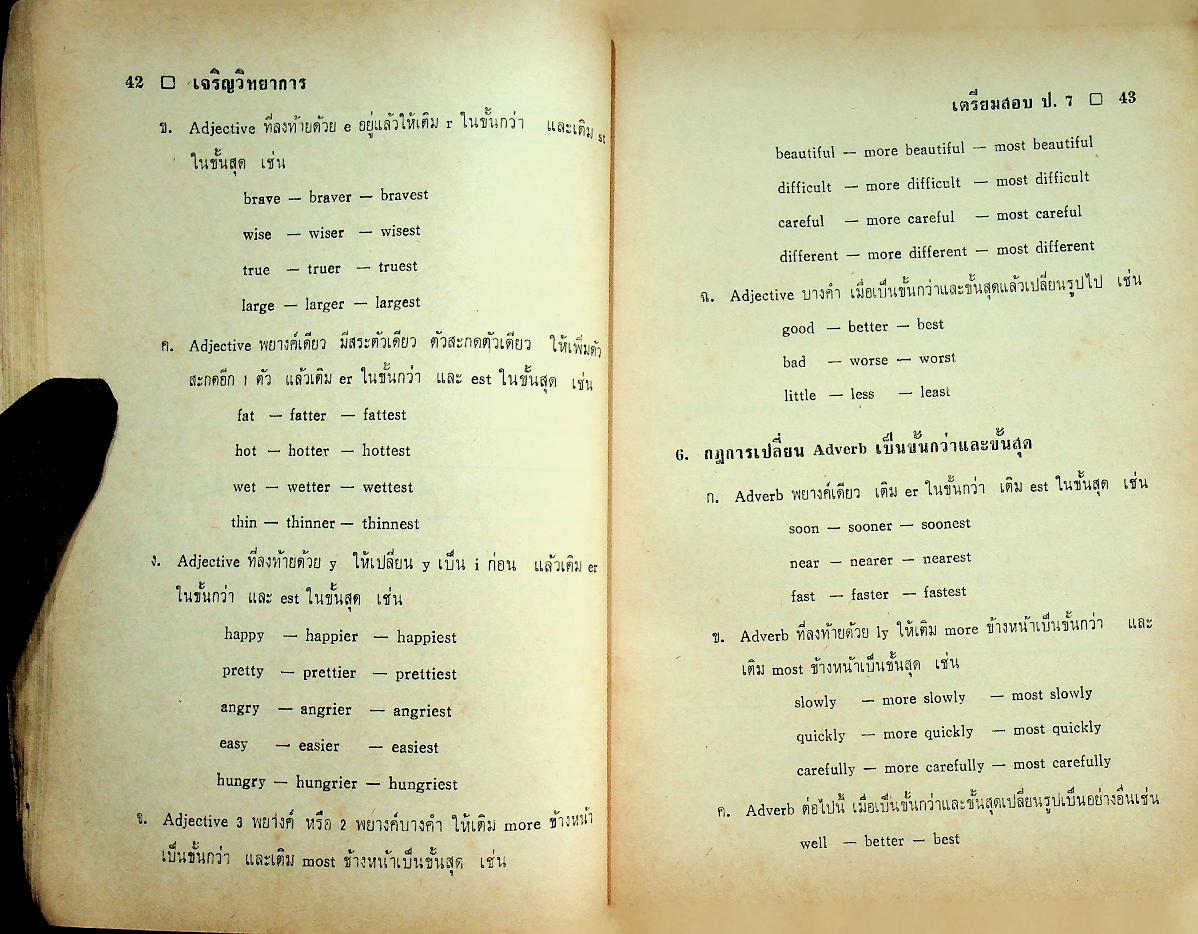 42 □ เจริญวิทยาการ
ข. Adjective ที่ลงท้ายด้วย e อยู่แล้วให้เติม r ในขั้นกว่า และเติม st
ในขั้นสุด เช่น
brave — braver — bravest
wise — wiser — wisest
true — truer — truest
large — larger — largest
ค. Adjective พยางค์เดียว มีสระตัวเดียว ตัวสะกดตัวเดียว ให้เพิ่มตัว
สะกดอีก 1 ตัว แล้วเติม er ในขั้นกว่า และ est ในขั้นสุด เช่น
fat — fatter — fattest
hot — hotter — hottest
wet — wetter — wettest
thin — thinner — thinnest
ง. Adjective ที่ลงท้ายด้วย y ให้เปลี่ยน y เป็น i ก่อน แล้วเติม er
ในขั้นกว่า และ est ในขั้นสุด เช่น
happy — happier — happiest
pretty — prettier — prettiest
angry — angrier — angriest
easy — easier — easiest
hungry — hungrier — hungriest
จ. Adjective 3 พยางค์ หรือ 2 พยางค์บางคำ ให้เติม more ข้างหน้า
เป็นขั้นกว่า และเติม most ข้างหน้าเป็นขั้นสุด เช่น
เตรียมสอบ ป. 7 □ 43
beautiful — more beautiful — most beautiful
difficult — more difficult — most difficult
careful — more careful — most careful
different — more different — most different
ฉ. Adjective บางคำ เมื่อเป็นขั้นกว่าและขั้นสุดแล้วเปลี่ยนรูปไป เช่น
good — better — best
bad — worse — worst
little — less — least
6. กฎการเปลี่ยน Adverb เป็นขั้นกว่าและขั้นสุด
ก. Adverb พยางค์เดียว เติม er ในขั้นกว่า เติม est ในขั้นสุด เช่น
soon — sooner — soonest
near — nearer — nearest
fast — faster — fastest
ข. Adverb ที่ลงท้ายด้วย ly ให้เติม more ข้างหน้าเป็นขั้นกว่า และ
เติม most ข้างหน้าเป็นขั้นสุด เช่น
slowly — more slowly — most slowly
quickly — more quickly — most quickly
carefully — more carefully — most carefully
ค. Adverb ต่อไปนี้ เมื่อเป็นขั้นกว่าและขั้นสุดเปลี่ยนรูปเป็นอย่างอื่นเช่น
well — better — best